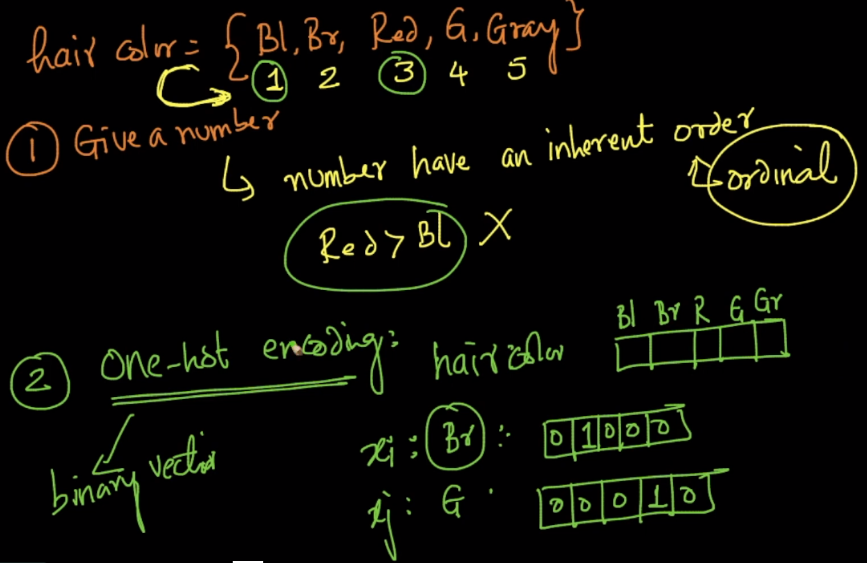 hair color = { Bl, Br, Red, G, Gray }
1 2 3 4 5
① Give a number
↳ number have an inherent order
ordinal
Red > Bl X
Bl Br R G Gr
② One-hot encoding: hair color
xi : Br : 0 1 0 0 0
binary vector
xj : G : 0 0 0 1 0